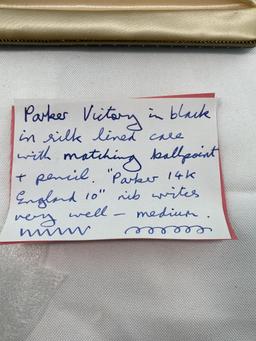 Parker Victory in black
in silk lined case
with matching ballpoint
+ pencil. "Parker 14K
England 10" nib writes
very well – medium.